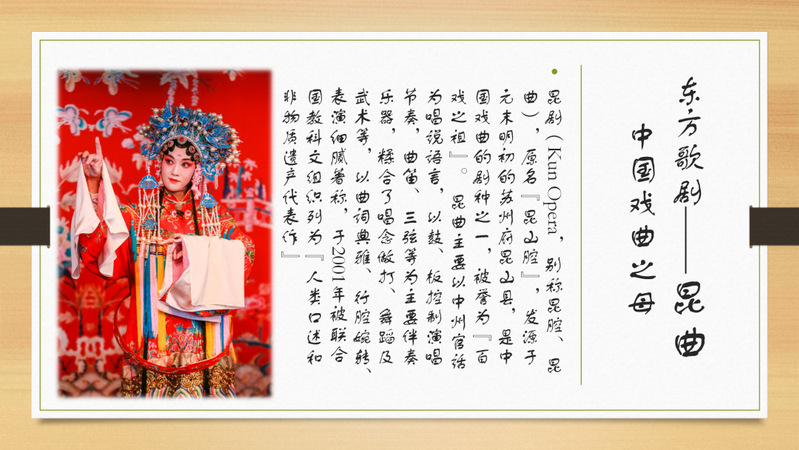 东方歌剧——昆曲
中国戏曲之母
• 昆剧（Kun Opera，别称昆腔、昆
曲），原名『昆山腔』，发源于
元末明初的苏州府昆山县，是中
国戏曲的剧种之一，被誉为『百
戏之祖』。昆曲主要以中州官话
为唱说语言，以鼓、板控制演唱
节奏，曲笛、三弦等为主要伴奏
乐器，糅合了唱念做打、舞蹈及
武术等，以曲词典雅、行腔婉转、
表演细腻著称，于2001年被联合
国教科文组织列为『人类口述和
非物质遗产代表作』